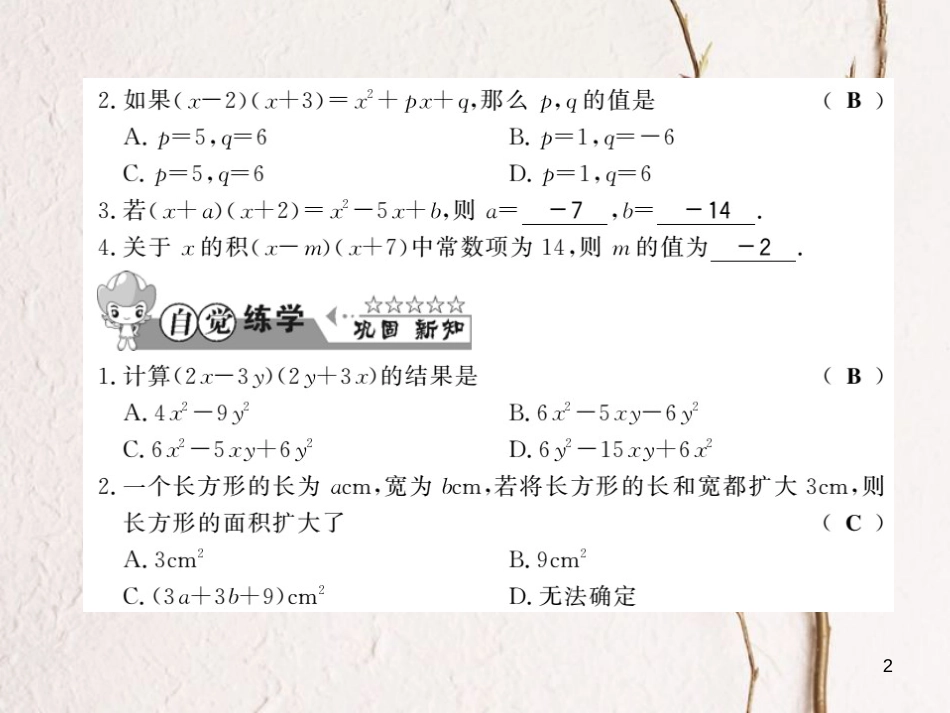 2.如果(x－2)(x＋3)＝x²＋px＋q,那么 p,q 的值是 ( B )
A. p＝5,q＝6 B. p＝1,q＝－6
C. p＝5,q＝6 D. p＝1,q＝6
3.若(x＋a)(x＋2)＝x²－5x＋b,则 a＝ －7 ,b＝ －14 .
4.关于 x 的积(x－m)(x＋7)中常数项为 14,则 m 的值为 －2 .
☆☆☆☆☆
自觉练学 巩固 新知
1.计算(2x－3y)(2y＋3x)的结果是 ( B )
A. 4x²－9y² B. 6x²－5xy－6y²
C. 6x²－5xy＋6y² D. 6y²－15xy＋6x²
2.一个长方形的长为 acm,宽为 bcm,若将长方形的长和宽都扩大 3cm,则
长方形的面积扩大了 ( C )
A. 3cm² B. 9cm²
C. (3a＋3b＋9)cm² D. 无法确定
2